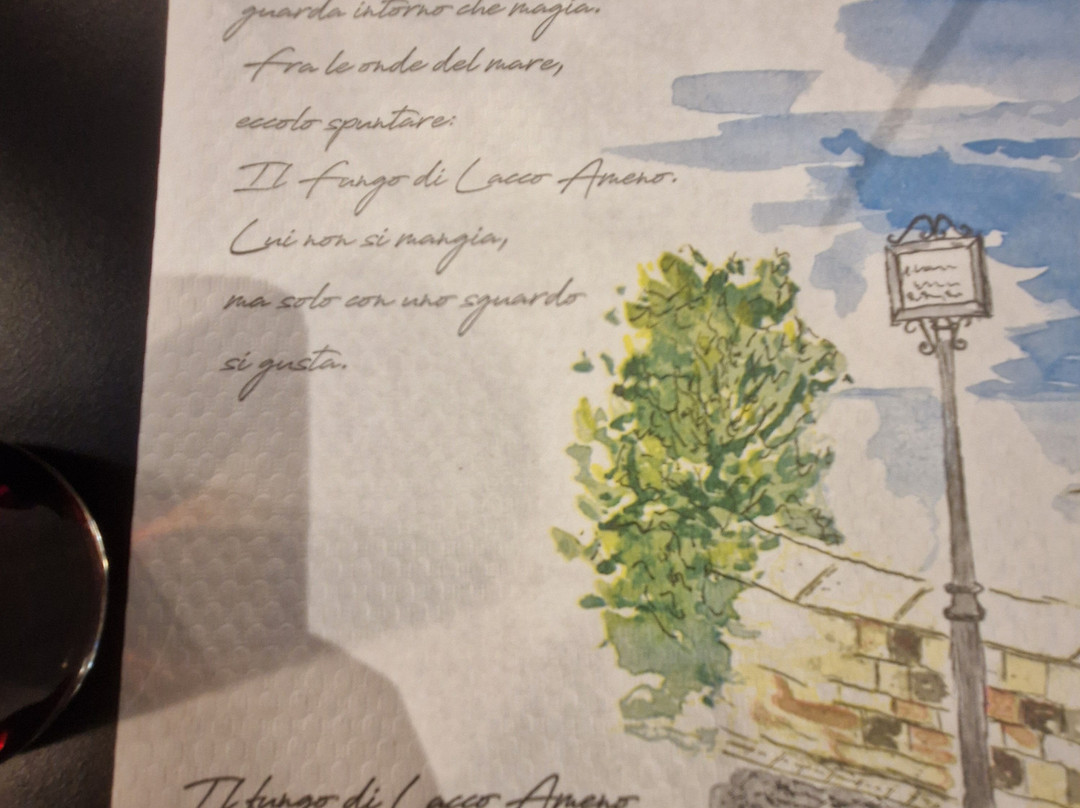 guarda intorno che magia.
fra le onde del mare,
eccolo spuntare:
Il fungo di Lacco Ameno.
Lui non si mangia,
ma solo con uno sguardo
si gusta.
Il fungo di Lacco Ameno